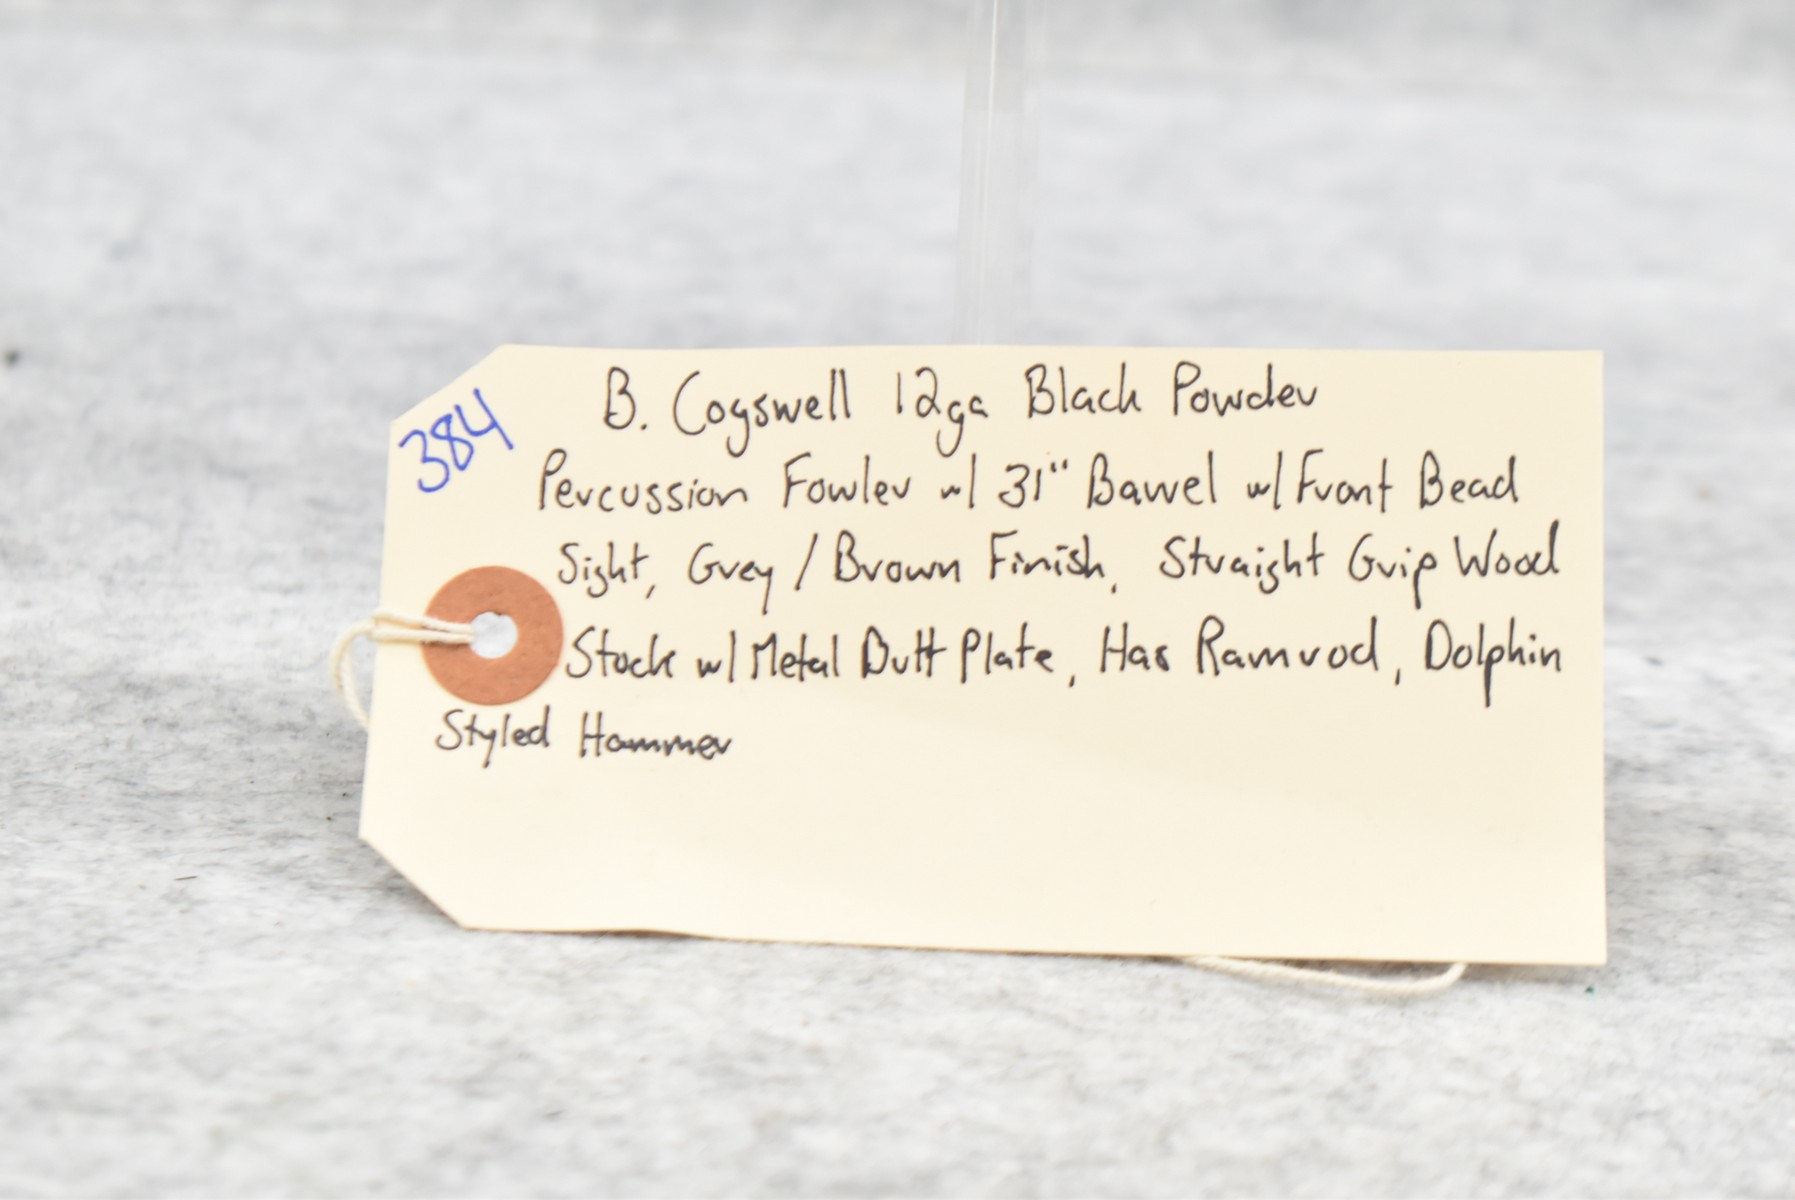 384
B. Cogswell 12ga Black Powder
Percussion Fowler w/ 31" Barrel w/ Front Bead
Sight, Grey / Brown Finish, Straight Grip Wood
Stock w/ Metal Butt Plate, Has Ramrod, Dolphin
Styled Hammer